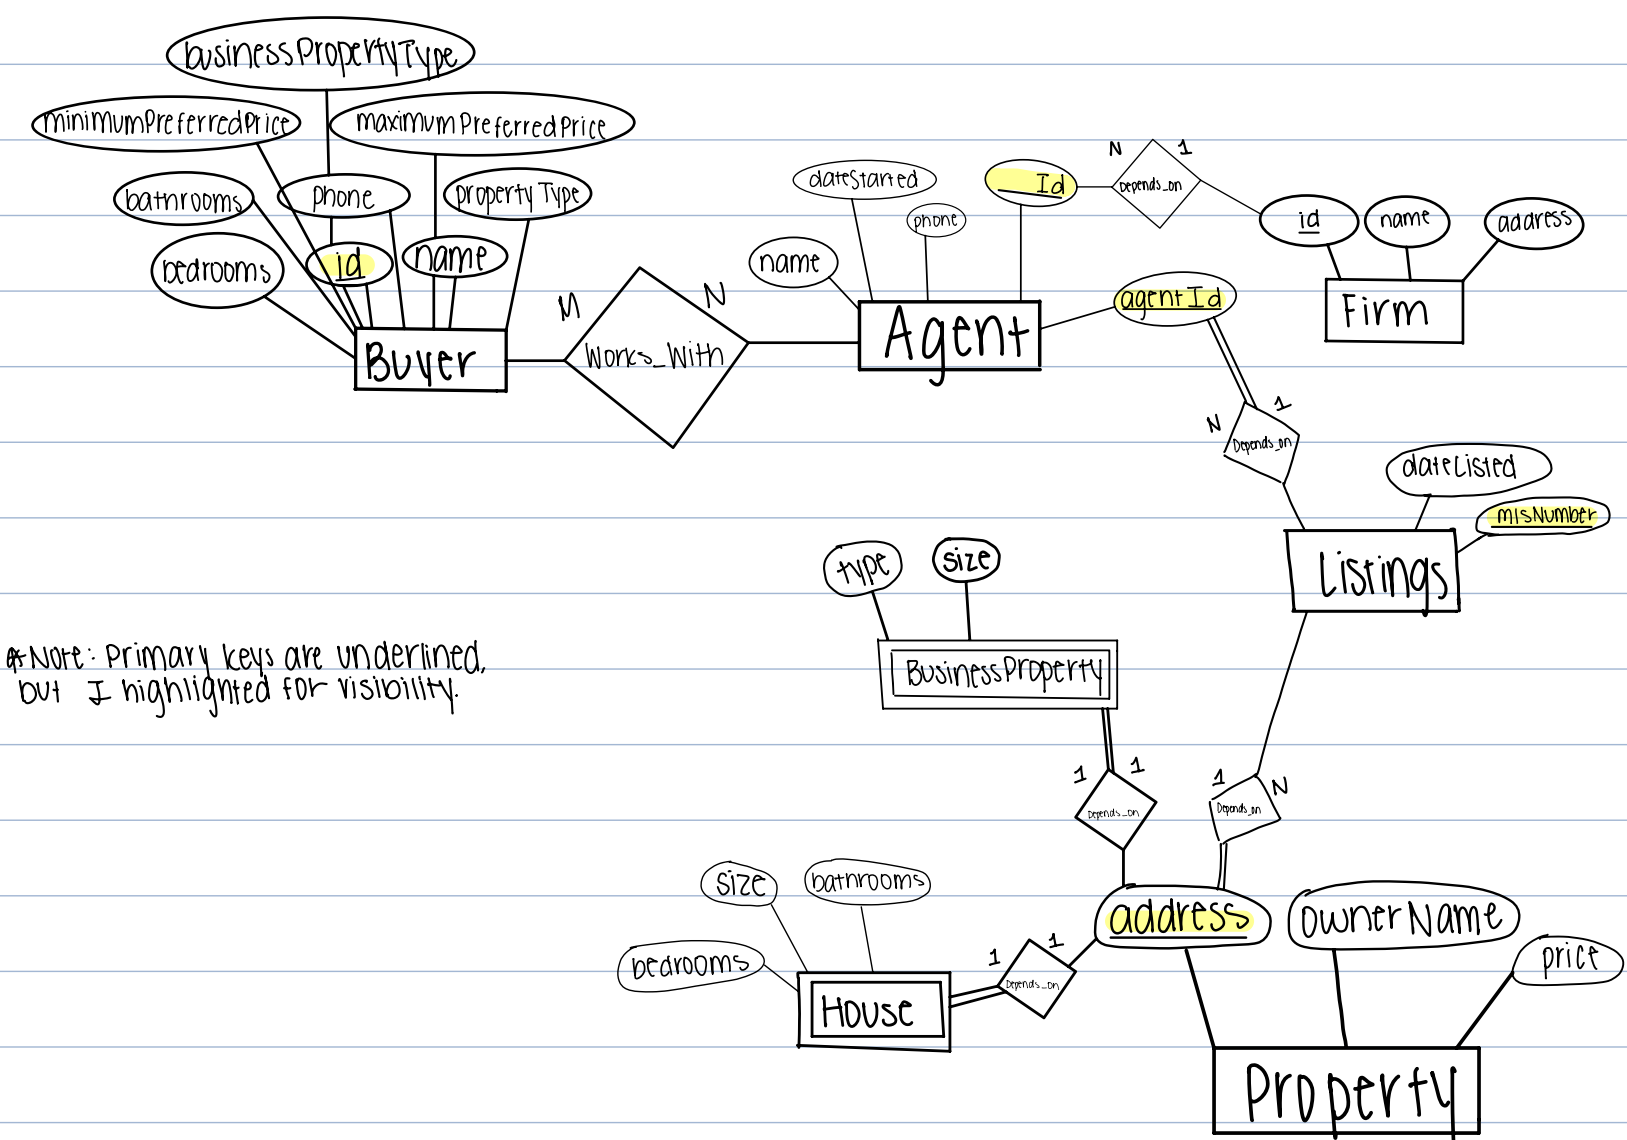 businessPropertyType
minimumPreferredPrice
maximumPreferredPrice
bathrooms
phone
propertyType
bedrooms
id
name
Buyer
M
N
Works_With
dateStarted
phone
Id
name
Agent
agentId
N
1
Depends_on
id
name
address
Firm
N
1
Depends_on
dateListed
mlsNumber
Listings
type
size
BusinessProperty
*Note: Primary keys are underlined,
but I highlighted for visibility.
1
1
Depends_on
1
N
Depends_on
size
bathrooms
bedrooms
House
1
1
Depends_on
address
ownerName
price
Property